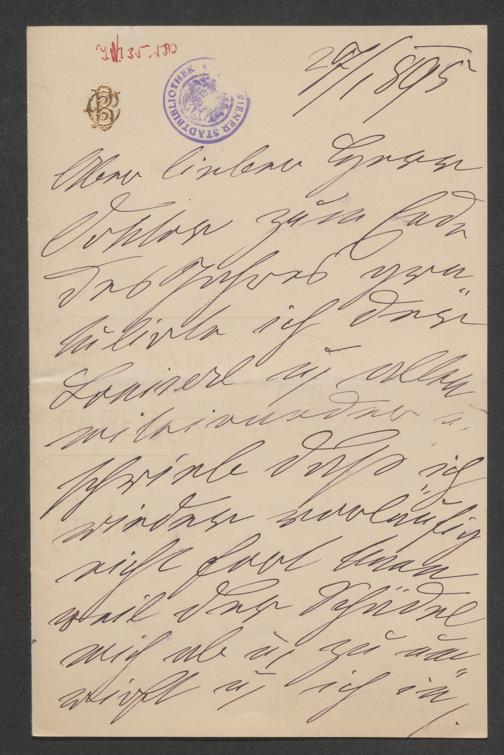 I.N. 35.580
WIENER STADTBIBLIOTHEK
29/1 895
Aber lieber Herr
Doktor zum Ende
des Jahres gra-
tulirte ich der
Louiserl u allen
miteinander u.
schrieb daß ich
wieder vorläufig
nicht fort kann
weil der Schädel
mich ab u zu um
wirft u ich im